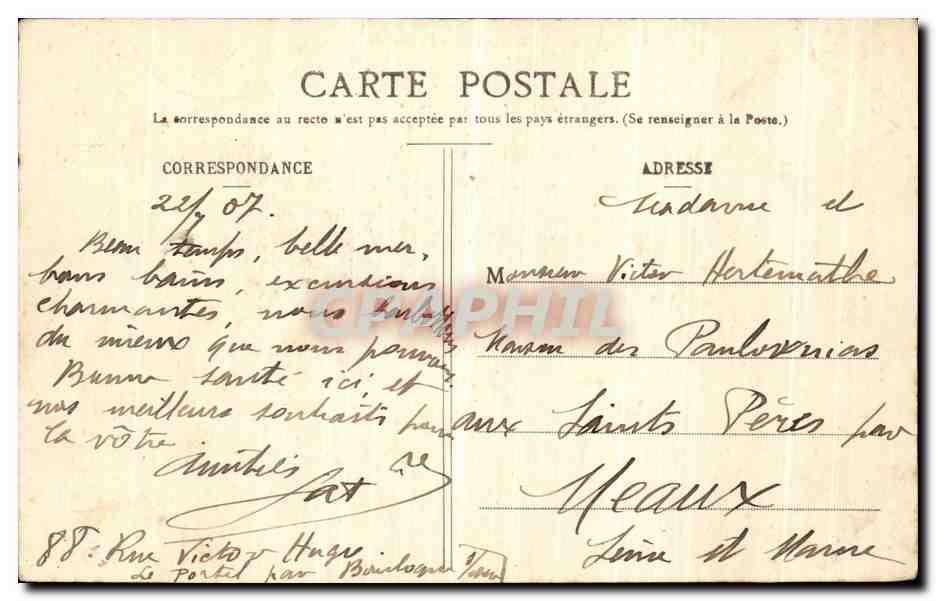 CARTE POSTALE
La correspondance au recto n'est pas acceptée par tous les pays étrangers. (Se renseigner à la Poste.)
CORRESPONDANCE
22/7 07.
Beau temps, belle mer,
bons bains, excursions
charmantes, nous
du mieux que nous pouvons.
Bonne santé ici et
nos meilleurs souhaits pour
la vôtre.
Amitiés
88. Rue Victor Hugo.
Le Portel par Boulogne s/mer
ADRESSE
Madame et
Monsieur Victor Hortemathe
Maison des Paulownias
aux Saints Pères par
Meaux
Seine et Marne
CPAPHIL